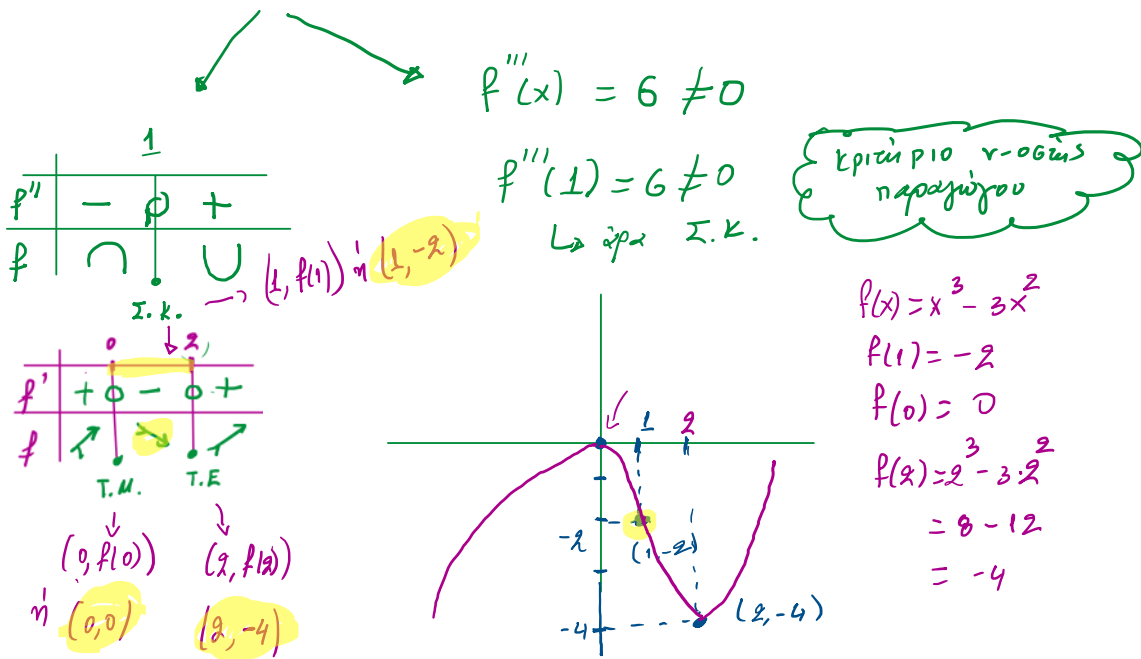 f'''(x) = 6 ≠ 0
f'''(1) = 6 ≠ 0
↳ άρα Σ.Κ.
κριτήριο ν-οστής
παραγώγου
1
f'' − 0 +
f ∩ ∪
Σ.Κ.
→ (1, f(1)) ή (1, -2)
0 2
f' + 0 − 0 +
f ↗ ↘ ↗
Τ.Μ. Τ.Ε
(0, f(0)) (2, f(2))
ή (0,0) (2, -4)
1 2
-2
(1, -2)
-4
(2, -4)
f(x) = x³ - 3x²
f(1) = -2
f(0) = 0
f(2) = 2³ - 3·2²
= 8 - 12
= -4